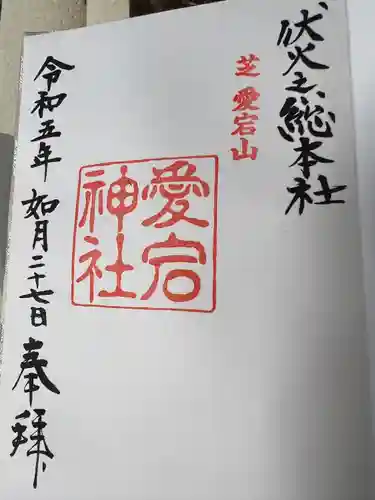 伏火之総本社
芝愛宕山
愛宕
神社
令和五年如月二十七日奉拝